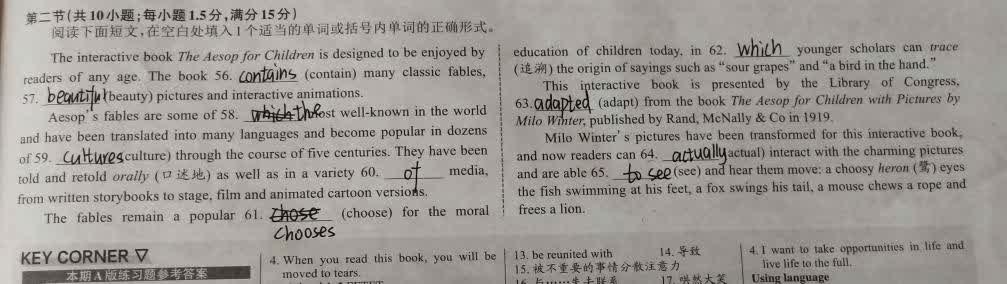 第二节(共10小题;每小题1.5分,满分15分)
阅读下面短文,在空白处填入1个适当的单词或括号内单词的正确形式。
The interactive book The Aesop for Children is designed to be enjoyed by
readers of any age. The book 56. contains (contain) many classic fables,
57. beautiful (beauty) pictures and interactive animations.
Aesop's fables are some of 58. the most well-known in the world
and have been translated into many languages and become popular in dozens
of 59. cultures (culture) through the course of five centuries. They have been
told and retold orally (口述地) as well as in a variety 60. of media,
from written storybooks to stage, film and animated cartoon versions.
The fables remain a popular 61. chose (choose) for the moral
chooses
education of children today, in 62. which younger scholars can trace
(追溯) the origin of sayings such as "sour grapes" and "a bird in the hand."
This interactive book is presented by the Library of Congress,
63. adapted (adapt) from the book The Aesop for Children with Pictures by
Milo Winter, published by Rand, McNally & Co in 1919.
Milo Winter's pictures have been transformed for this interactive book,
and now readers can 64. actually (actual) interact with the charming pictures
and are able 65. to see (see) and hear them move: a choosy heron (鹭) eyes
the fish swimming at his feet, a fox swings his tail, a mouse chews a rope and
frees a lion.
KEY CORNER ▽
本期A版练习题参考答案
4. When you read this book, you will be
moved to tears.
13. be reunited with 14. 导致
15. 被不重要的事情分散注意力
17. 哄然大笑
4. I want to take opportunities in life and
live life to the full.
Using language